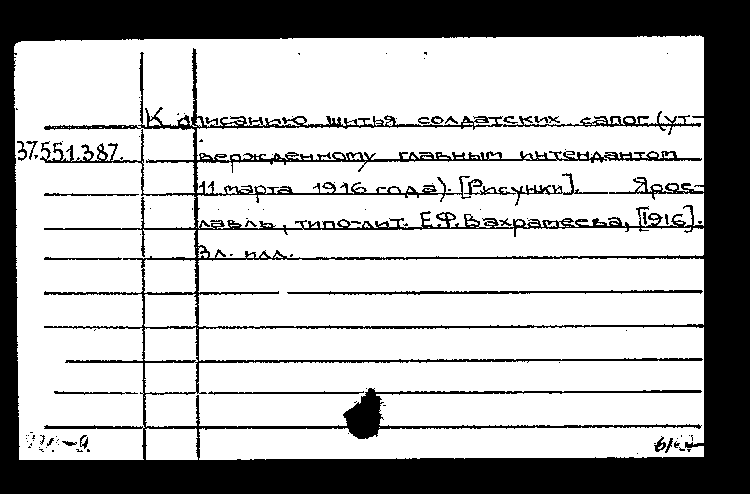 К описанию шитья солдатских сапог (ут-
37.55.1.387. вержденному главным интендантом
11 марта 1916 года). [Рисунки]. Ярос-
лавль, типо-лит. Е.Ф.Вахрамеева, [1916].
3л. илл.